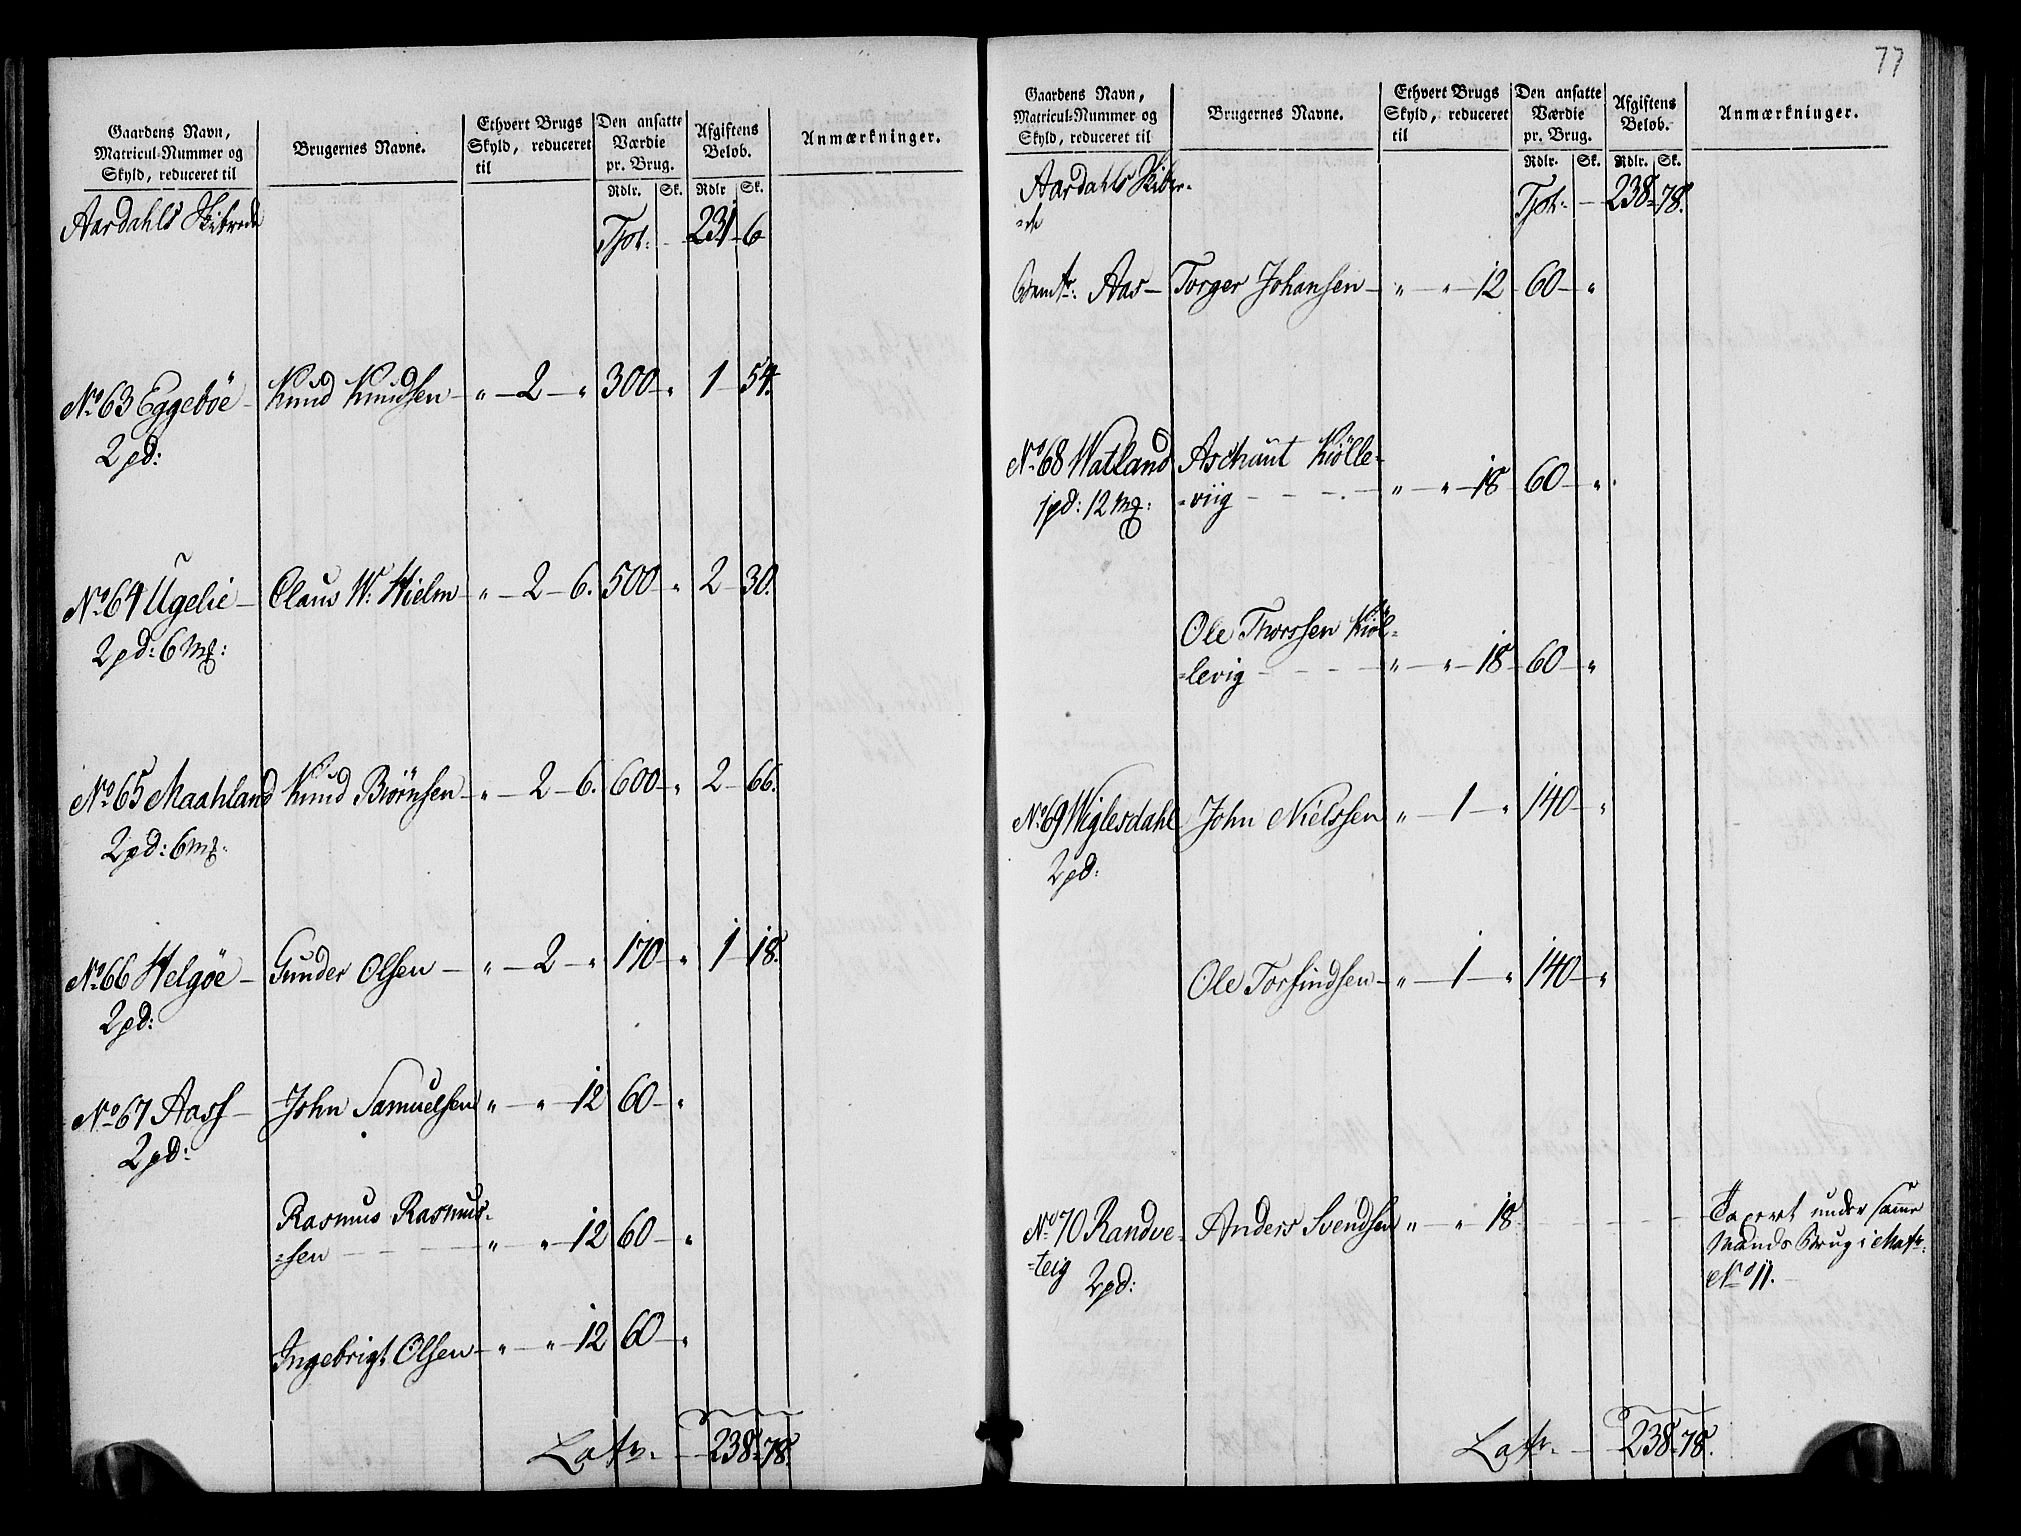 Gaardens Navn,
Matricul-Nummer og
Skyld, reduceret til
Brugernes Navne.
Ethvert Brugs
Skyld, reduceret
til
Den ansatte
Værdie
pr. Brug.
Afgiftens
Beløb.
Anmærkninger.
Rdlr. Sk. Rdlr Sk.
Aardahls Skibrede Tpt: 231 6
No 63 Eggeböe Knud Knudsen " 2 " 300 " 1 54.
2 pd:
No 64 Ugelie Claus W. Hielm " 2 6. 500 " 2 30.
2 pd: 6 mk:
No 65 Maahland Knud Biörnsen " 2 6. 600 " 2 66.
2 pd: 6 mk.
No 66 Helgöe Gunder Olsen " 2 " 170 " 1 18.
2 pd:
No 67 Aass John Samuelsen " " 12 60 "
2 pd:
Rasmus Rasmus-
=sen " " 12 60 "
Ingebrigt Olsen " " 12 60 "
Latr. 238 78.
77
Gaardens Navn,
Matricul-Nummer og
Skyld, reduceret til
Brugernes Navne.
Ethvert Brugs
Skyld, reduceret
til
Den ansatte
Værdie
pr. Brug.
Afgiftens
Beløb.
Anmærkninger.
Rdlr. Sk. Rdlr. Sk.
Aardahls Skibr-
=de Tpt: 238 78.
Aas Torger Johansen " " 12 60 "
No 68 Watland Aschaut Kiölle-
1 pd: 12 mk: =viig " " 18 60 "
Ole Thorssen Kiöl-
=levig " " 18 60 "
No 69 Wiglesdahl John Nielssen " 1 " 140 "
2 pd:
Ole Torfindsen " 1 " 140 "
No 70 Randve- Anders Svendsen " " 18 Taxeret under samme
=teig Mands Brug i Matr:
2 pd: No 11.
Latr. 238 78.